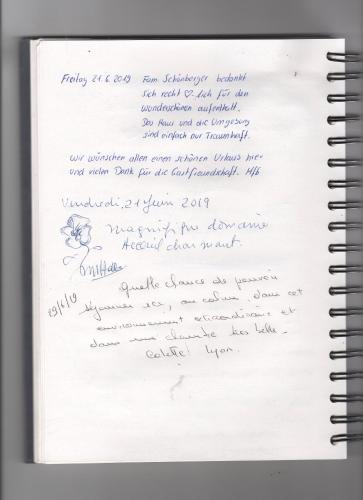 Freitag 21.6.2019 Fam. Schönberger bedankt
sich recht ♡-lich für den
wunderschönen aufenthalt.
Das Haus und die Umgebung
sind einfach nur Traumhaft.
Wir wünschen allen einen schönen Urlaub hier
und vielen Dank für die Gastfreundschaft.
Vendredi, 21 Juin 2019
Magnifique domaine
Acceuil charmant.
29/6/19
Quelle chance de pouvoir
séjourner ici, au calme, dans cet
environnement extraordinaire et
dans une chambre très belle.
Colette Lyon.